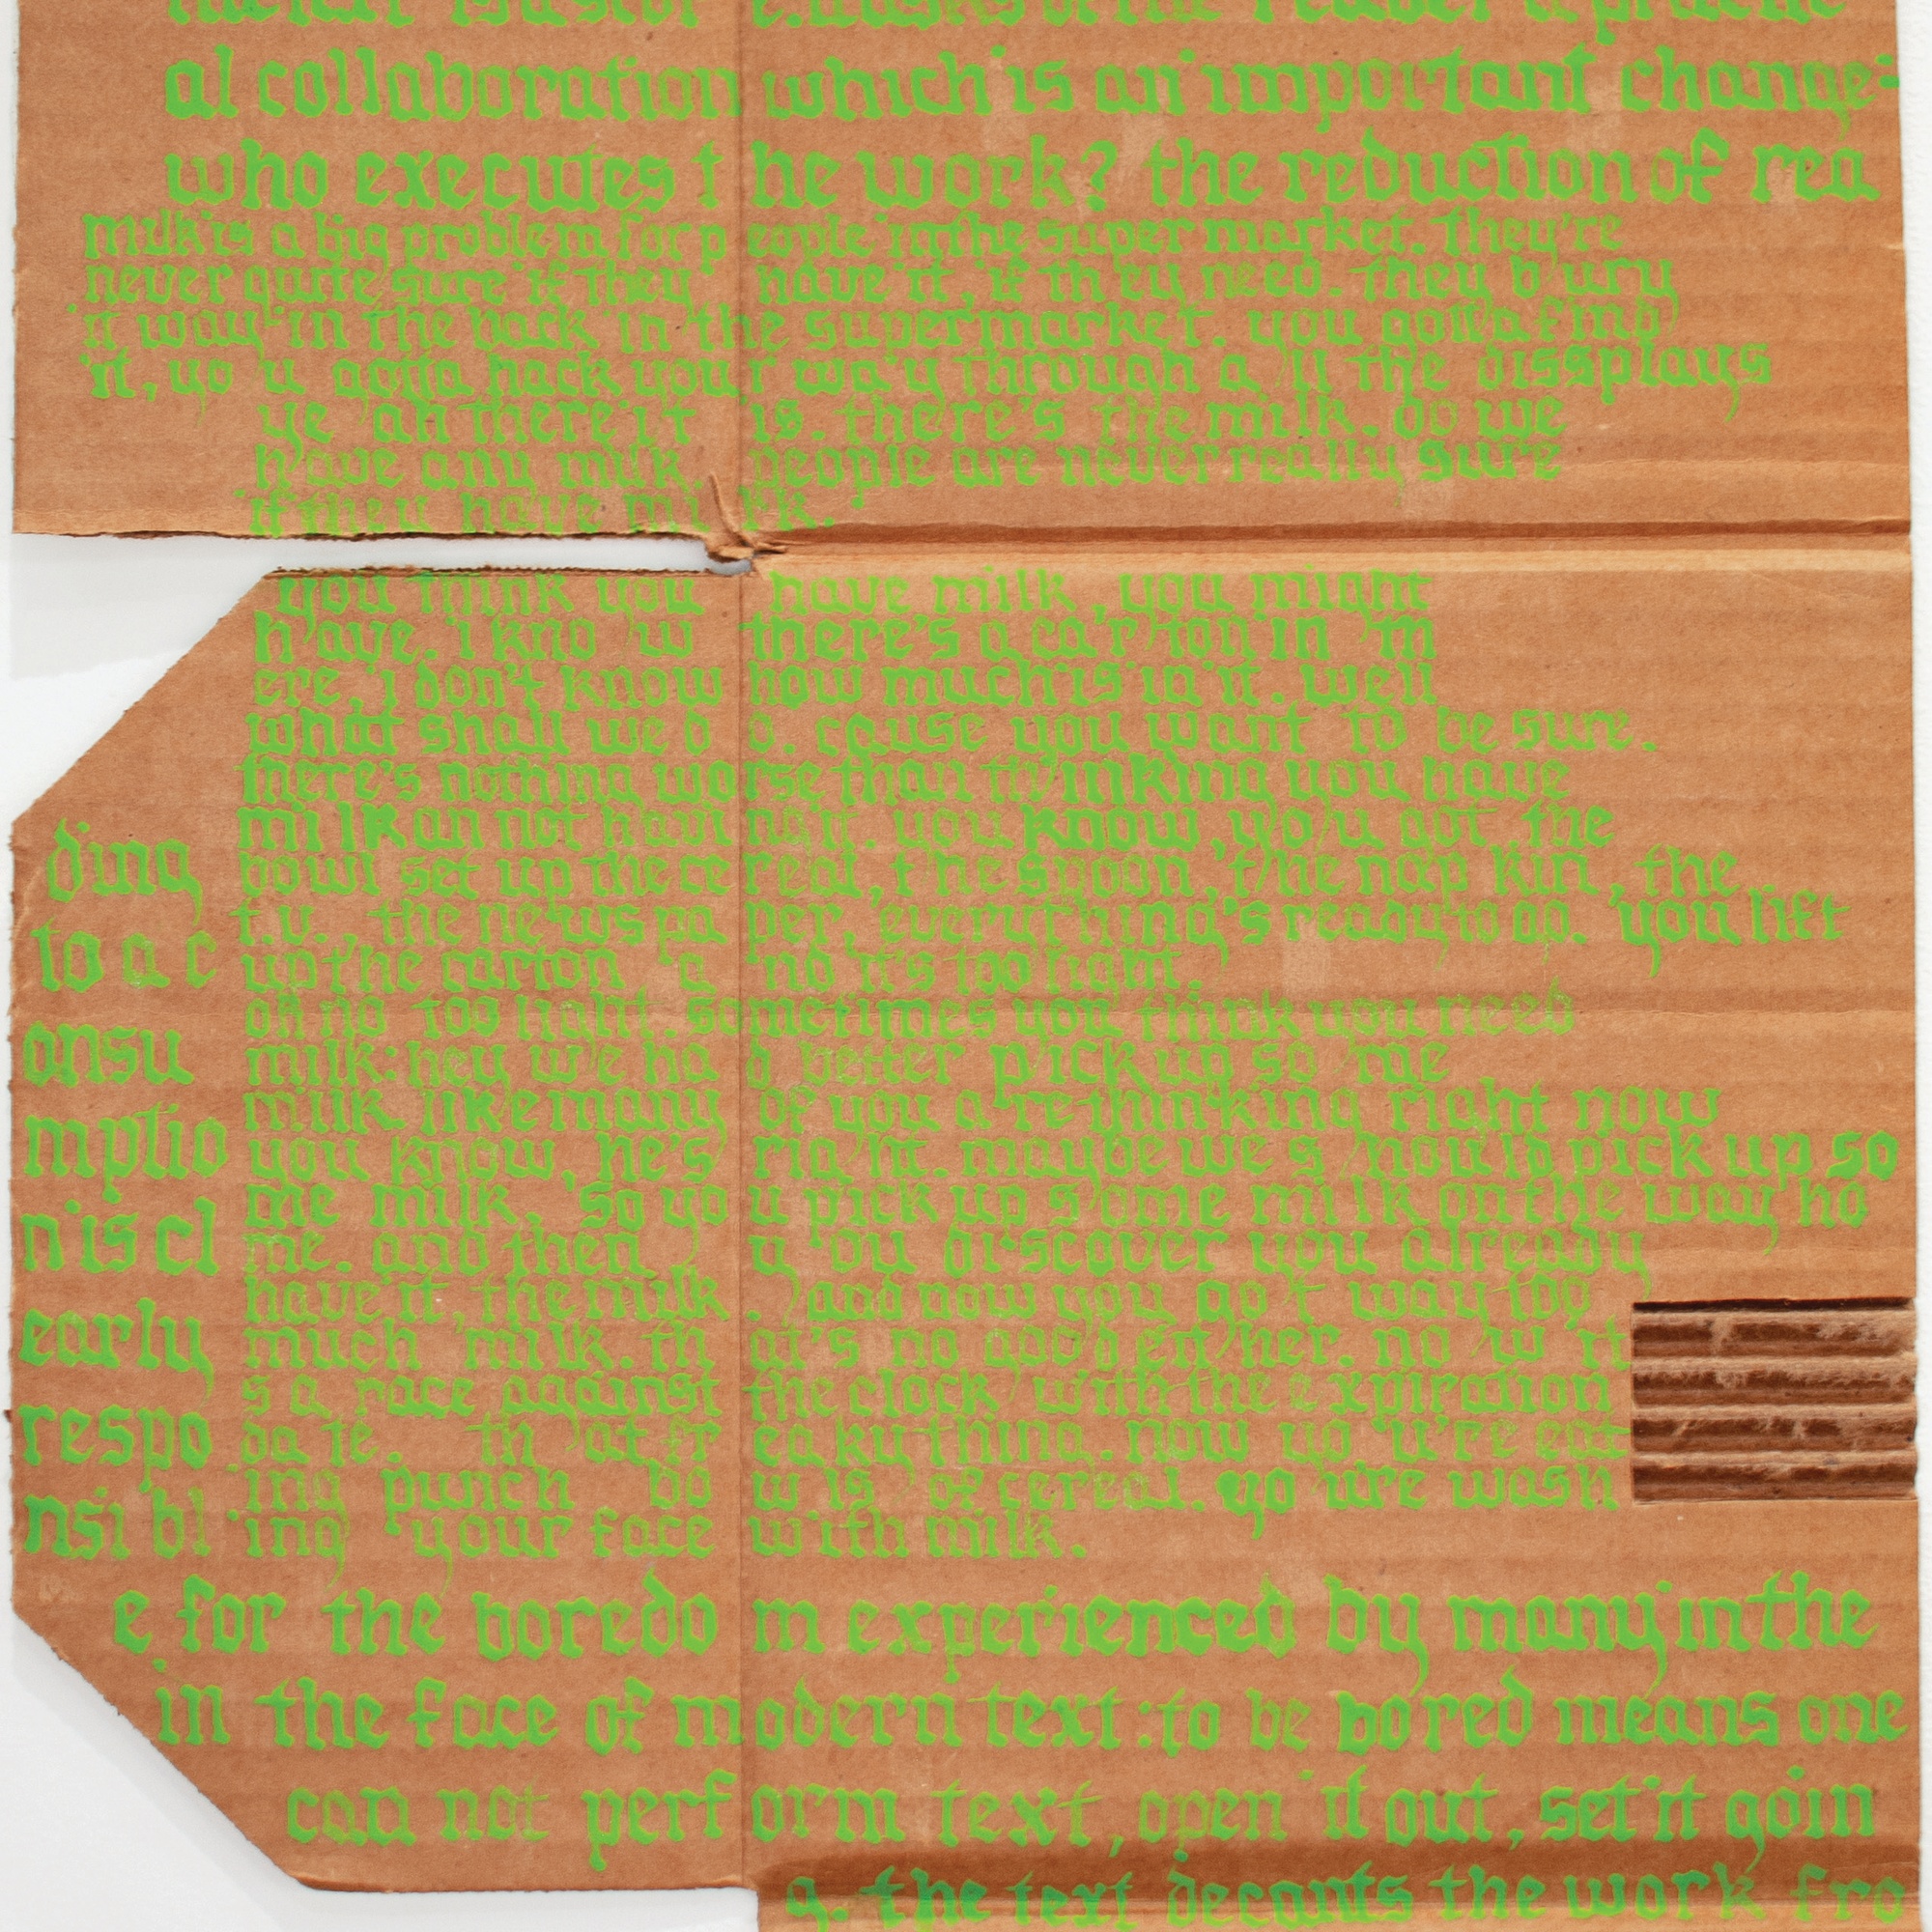 e. it asks of the reader a practic
al collaboration which is an important change:
who executes t he work? the reduction of rea
milk is a big problem for p eople in the super market. they're
never quite sure if they have it, if th ey need. they b ury
it way in the back in the supermarket. you gotta find
it, yo u gotta hack your wa y through a ll the dissplays
ye ah there it is. there's the milk. do we
h ave any milk. people are never really sure
if they have mi lk.
you think you have milk, you might
h ave. i kno w there's a ca r ton in th
ere, i don't know how much is in it. well
what shall we d o. cause you want to be sure.
there's nothing worse than th inking you have
milk an not havi ng it. you know, yo u got the
ding bowl set up the ce real, the spoon, the nap kin, the
to a c t.v., the newspa per, everything's ready to go. you lift
up the carton a nd it's too light.
onsu oh no too light. sometimes you think you need
milk: hey we ha d better pick up so me
mptio milk like many of you a re thinking right now
you know, he's right. maybe we s hould pick up so
n is cl me milk, so yo u pick up some milk on the way ho
me. and then y ou discover you already
early have it, the milk. and now you go t way too
much milk. th at's no goo d eit her. no w it
respo s a race against the clock with the expiration
da te. th at fr eaky thing. now yo u're eat
nsi bl ing punch bo w ls of cereal. yo u're wash
ing your face with milk.
e for the boredo m experienced by many in the
in the face of modern text: to be bored means one
can not perf orm text, open it out, set it goin
g. the text decants the work fro